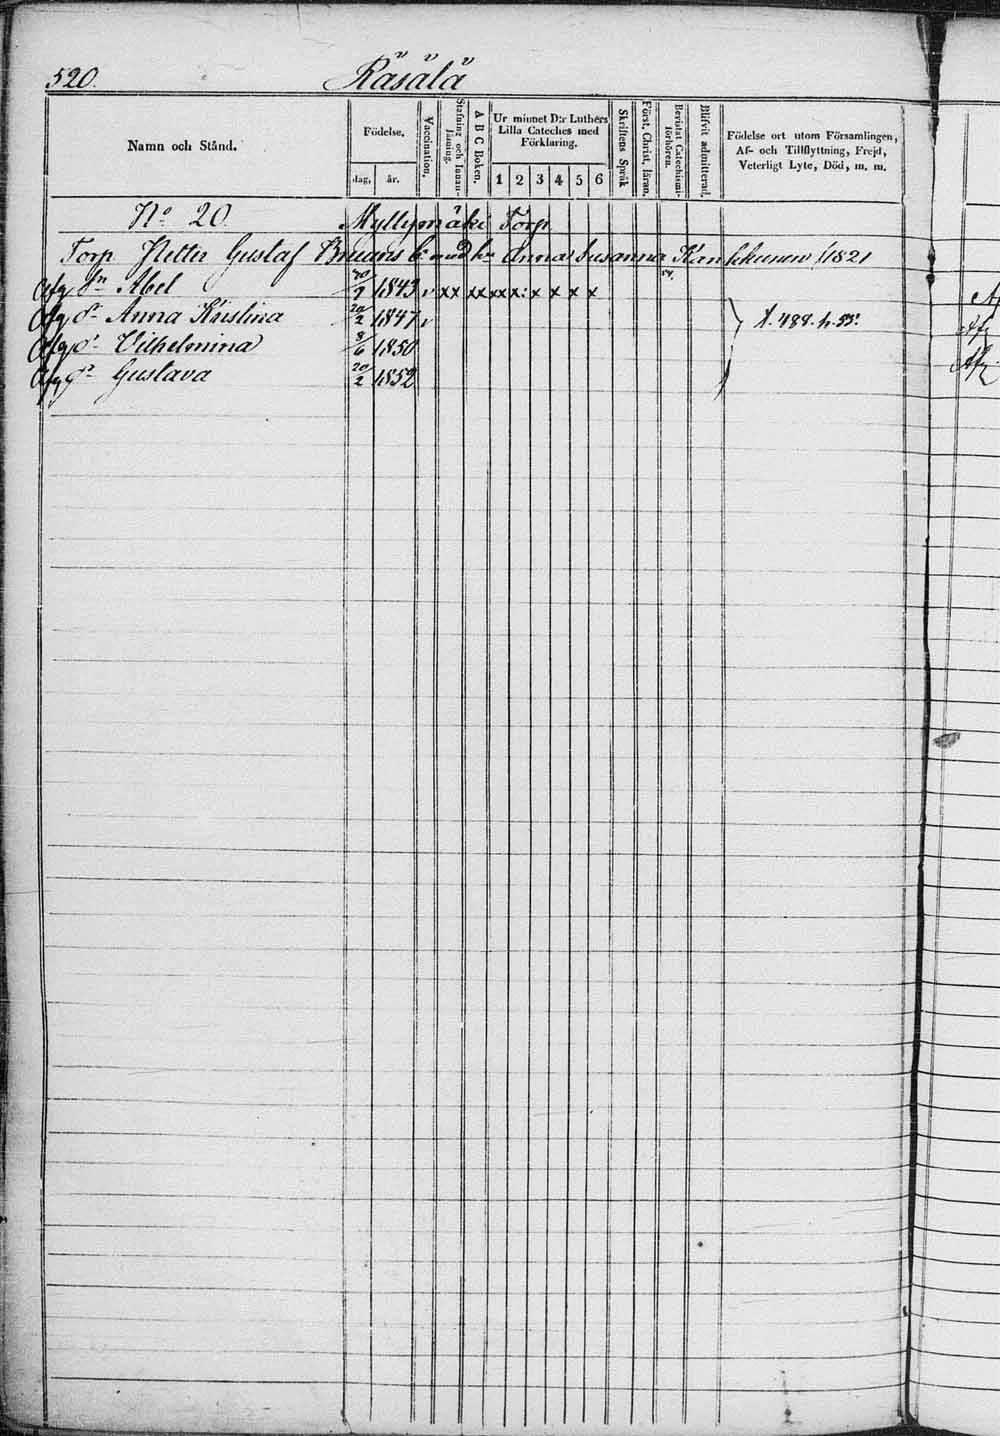 520. Räsälä
Namn och Stånd.
Födelse.
dag. år.
Vaccination.
Stafning och Innan-läsning.
A B C Boken.
Ur minnet D:r Luthers Lilla Cateches med Förklaring.
1 2 3 4 5 6
Skriftens Språk
Först. Christ. läran.
Bevistat Catechismi-förhören.
Blifvit admitterad.
Födelse ort utom Församlingen, Af- och Tillflyttning, Frejd, Veterligt Lyte, Död, m. m.
No 20. Myllymäki Torp
Torp Petter Gustaf med Anna Susanna 1821
Afg Sn Abel 1843 v xx xx xx x: x x x x
Afg Dr Anna Kristina 20/2 1847 v
Afg Dr Vilhelmina 8/6 1850
Afg Dr Gustava 20/2 1852
Afg
Afg